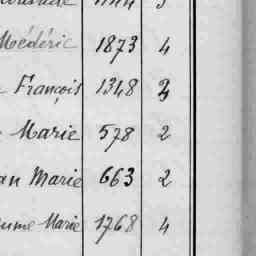 Médéric 1873 4
François 1348 2
Marie 578 2
an Marie 663 2
ume Marie 1768 4